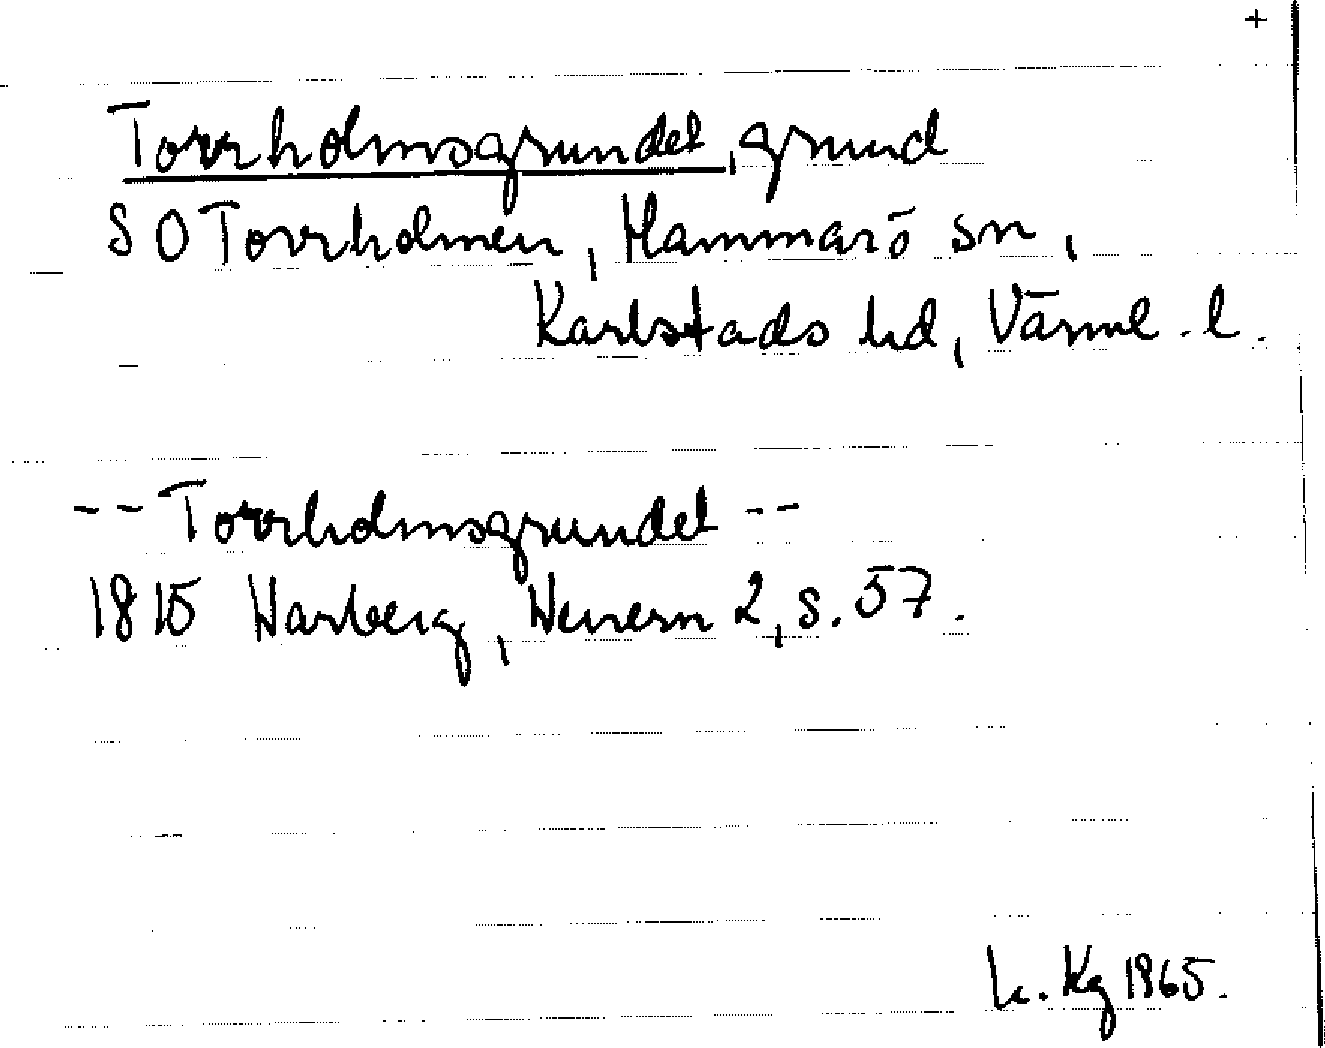 +
Torrholmsgrundet, grund
S O Torrholmen, Hammarö sn,
Karlstads hd, Värml. l.
-- Torrholmsgrundet --
1815 Warberg, Wenern 2, s. 57.
Kg 1965.